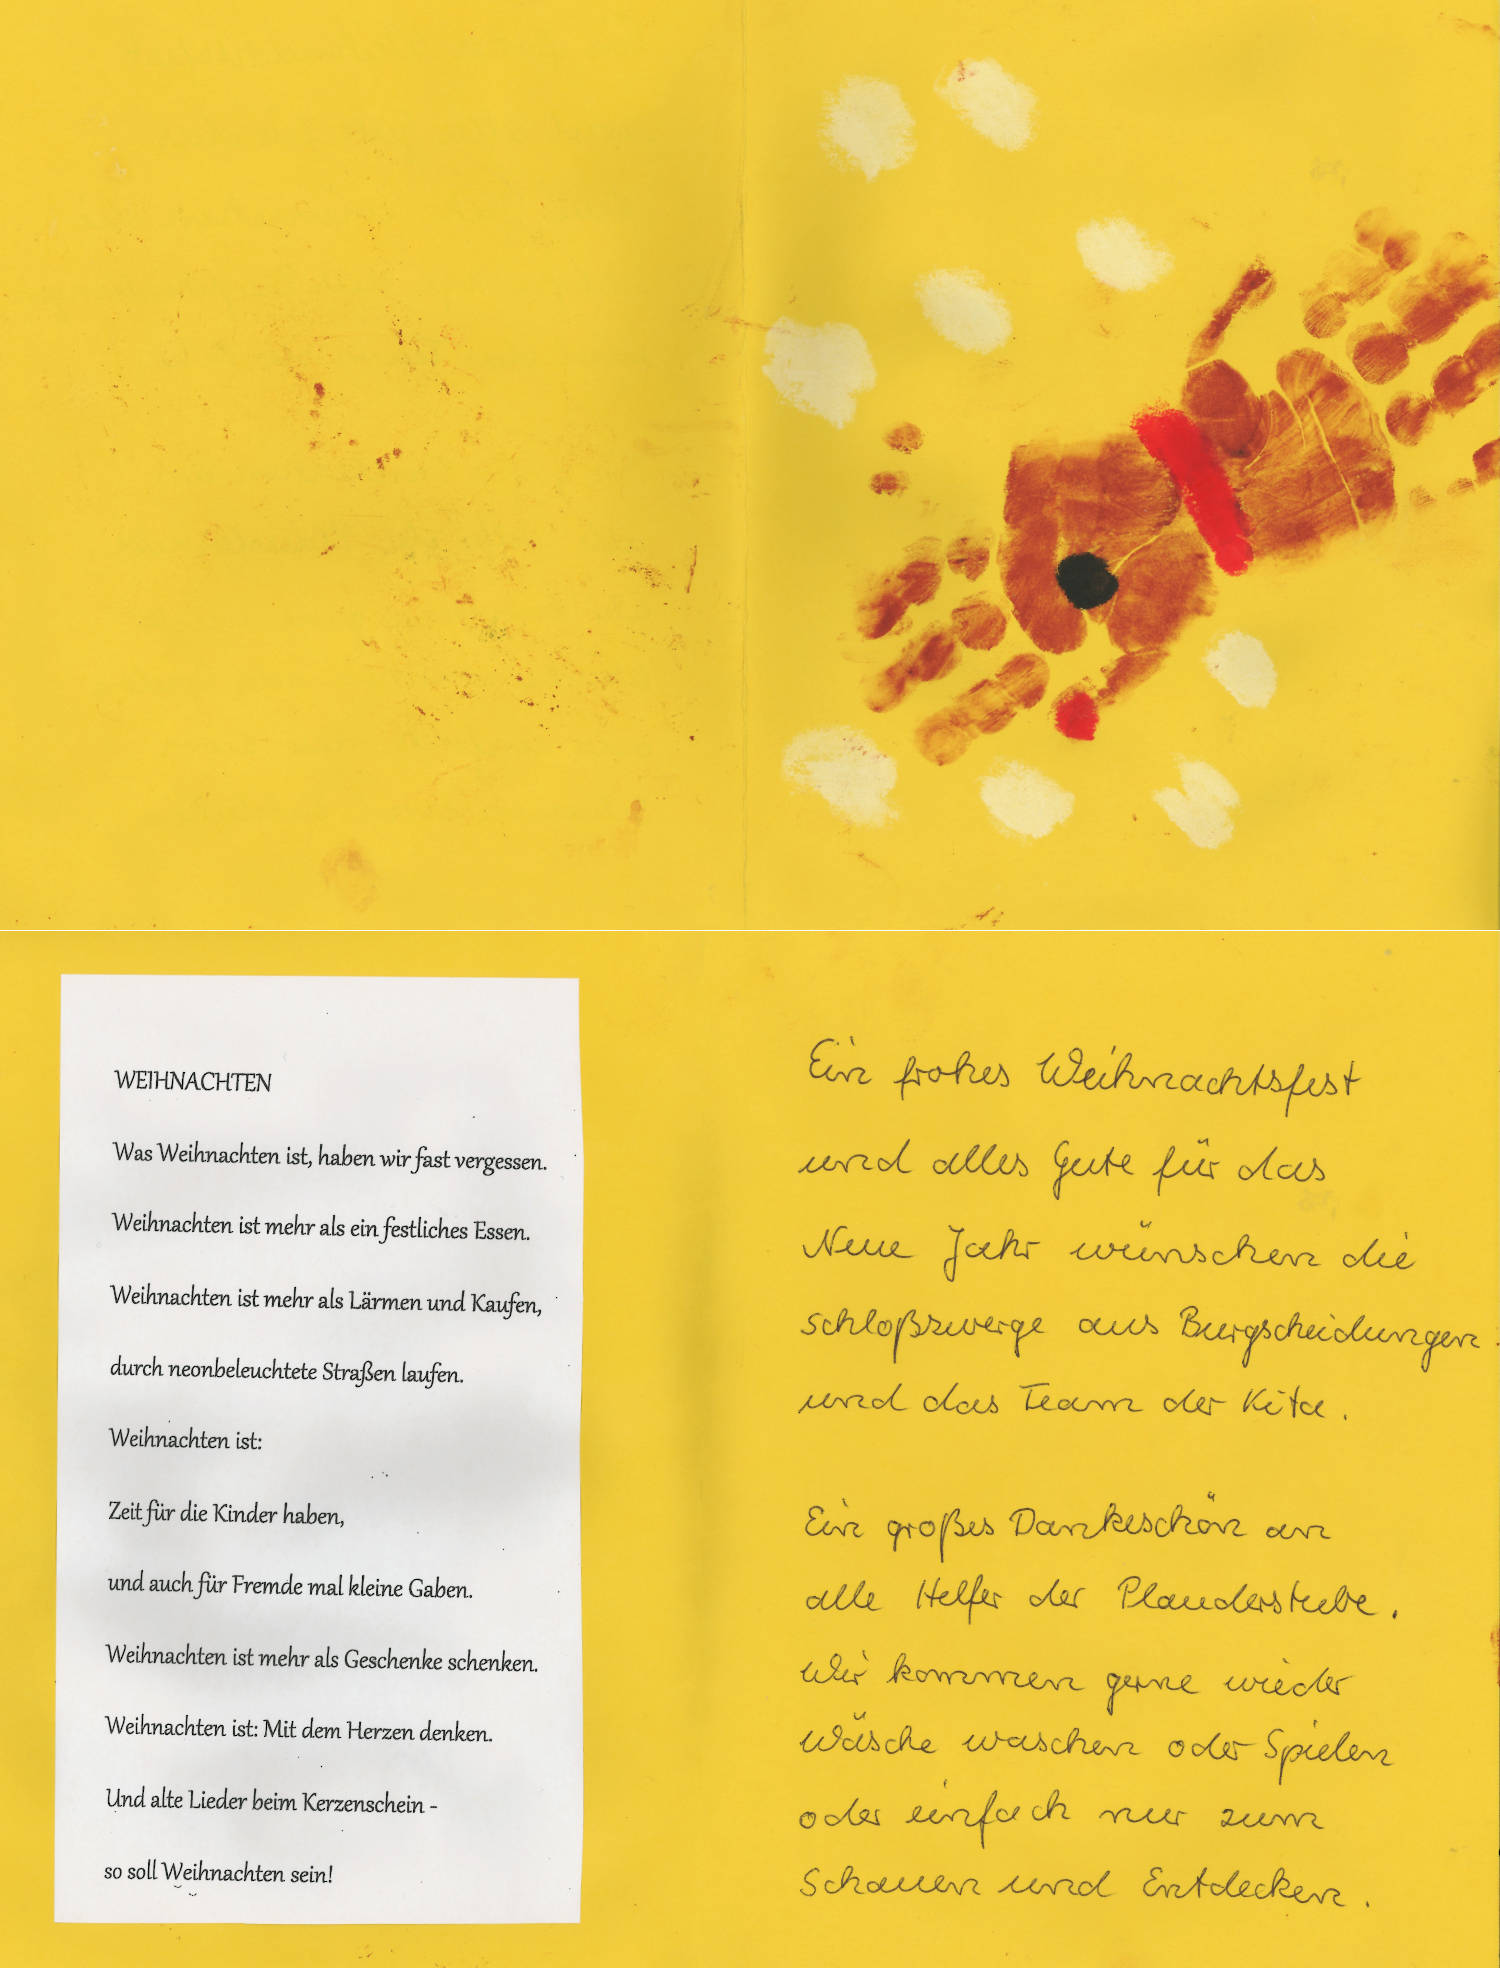 WEIHNACHTEN
Was Weihnachten ist, haben wir fast vergessen.
Weihnachten ist mehr als ein festliches Essen.
Weihnachten ist mehr als Lärmen und Kaufen,
durch neonbeleuchtete Straßen laufen.
Weihnachten ist:
Zeit für die Kinder haben,
und auch für Fremde mal kleine Gaben.
Weihnachten ist mehr als Geschenke schenken.
Weihnachten ist: Mit dem Herzen denken.
Und alte Lieder beim Kerzenschein -
so soll Weihnachten sein!
Ein frohes Weihnachtsfest
und alles Gute für das
Neue Jahr wünschen die
Schloßzwerge aus Burgscheidungen
und das Team der Kita.
Ein großes Dankeschön an
alle Helfer der Plauderstube.
Wir kommen gerne wieder
Wäsche waschen oder Spielen
oder einfach nur zum
Schauen und Entdecken.